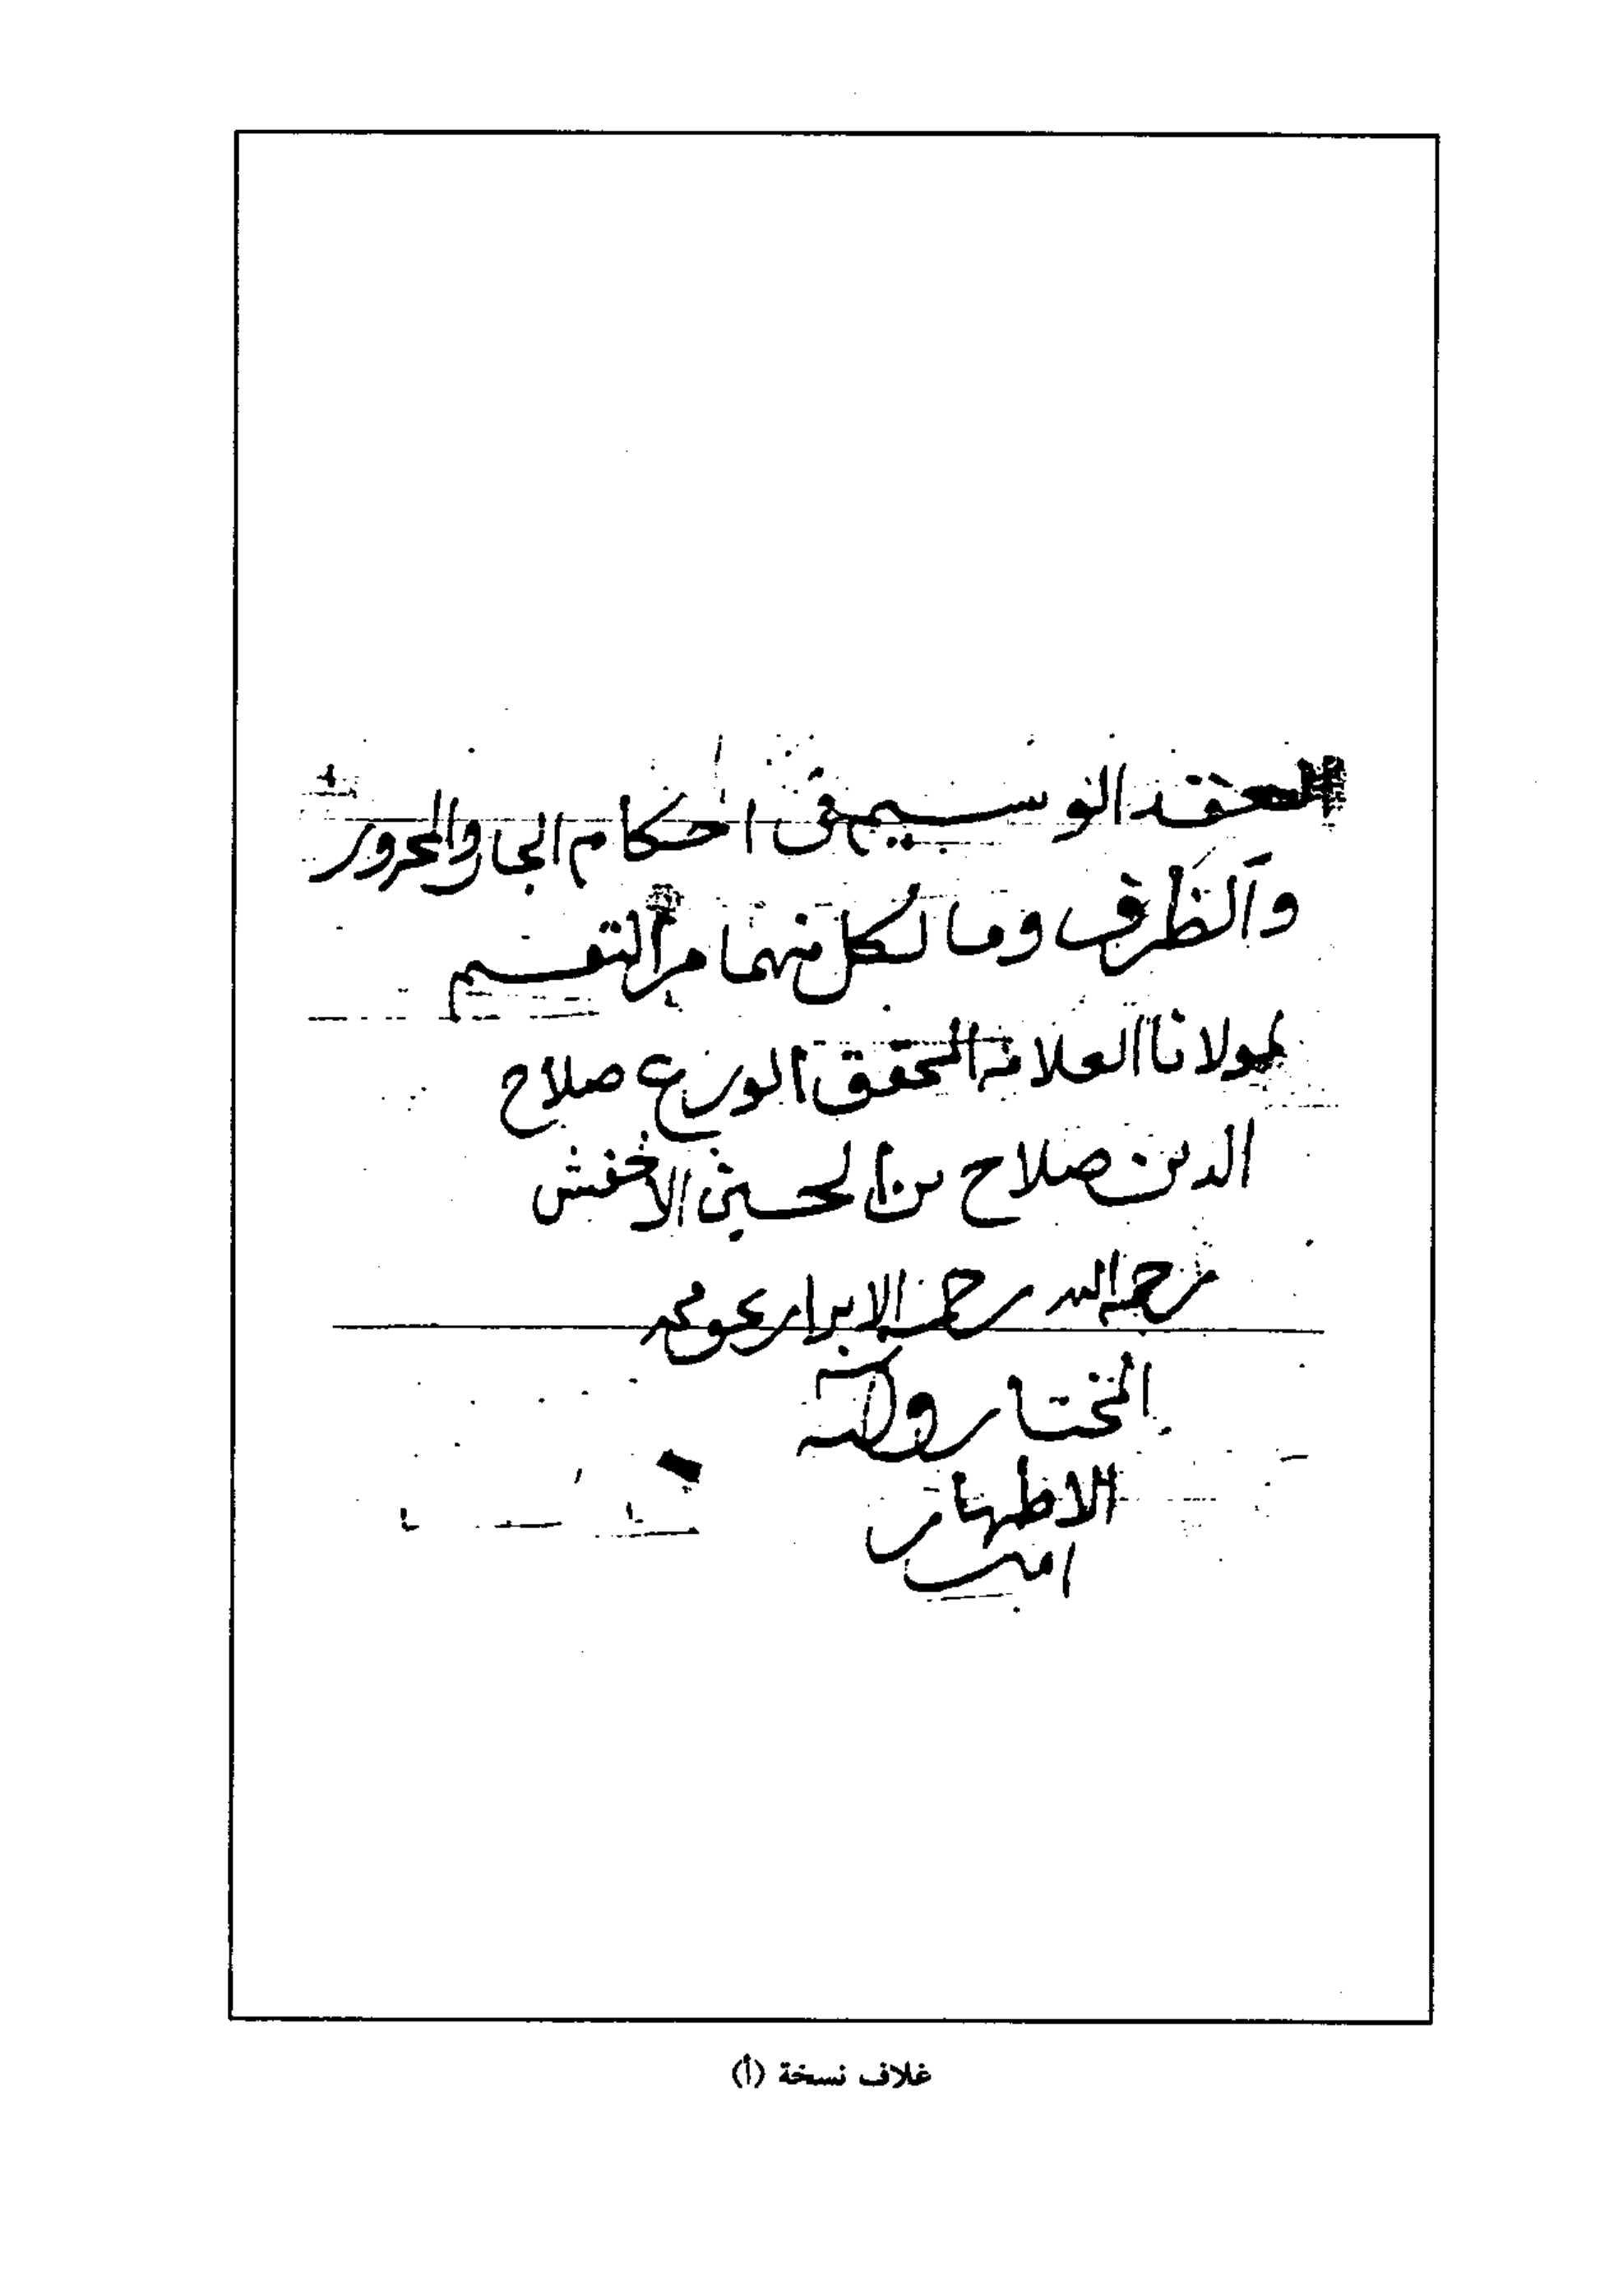 العقد الوسيم في احكام الجار والمجرور
والظرف وما لكل منهما من التقسيم
لمولانا العلامة المحقق الورع صلاح
الدين صلاح بن الحسين الاخفش
رحمه الله رحمة الابرار بحق محمد
المختار واله
الاطهار
امين
غلاف نسخة (أ)